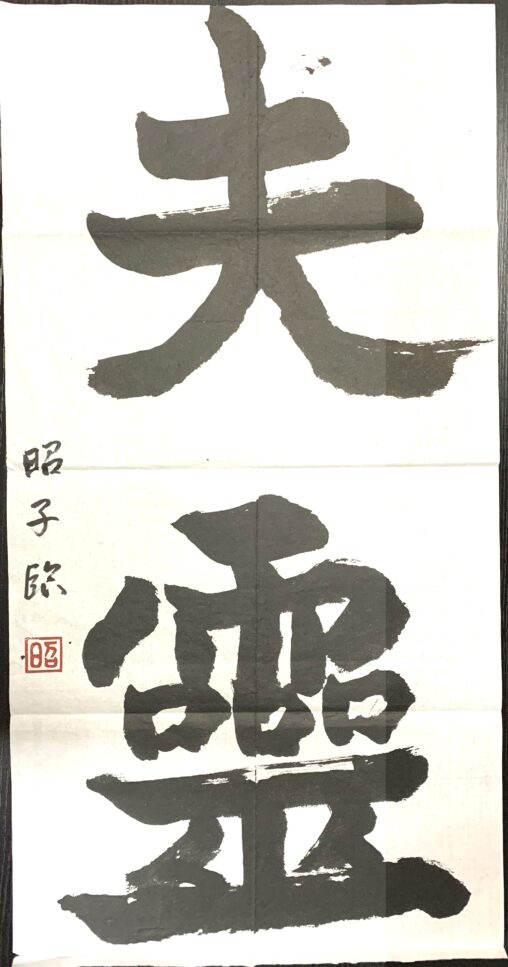 夫靈
昭子臨
昭